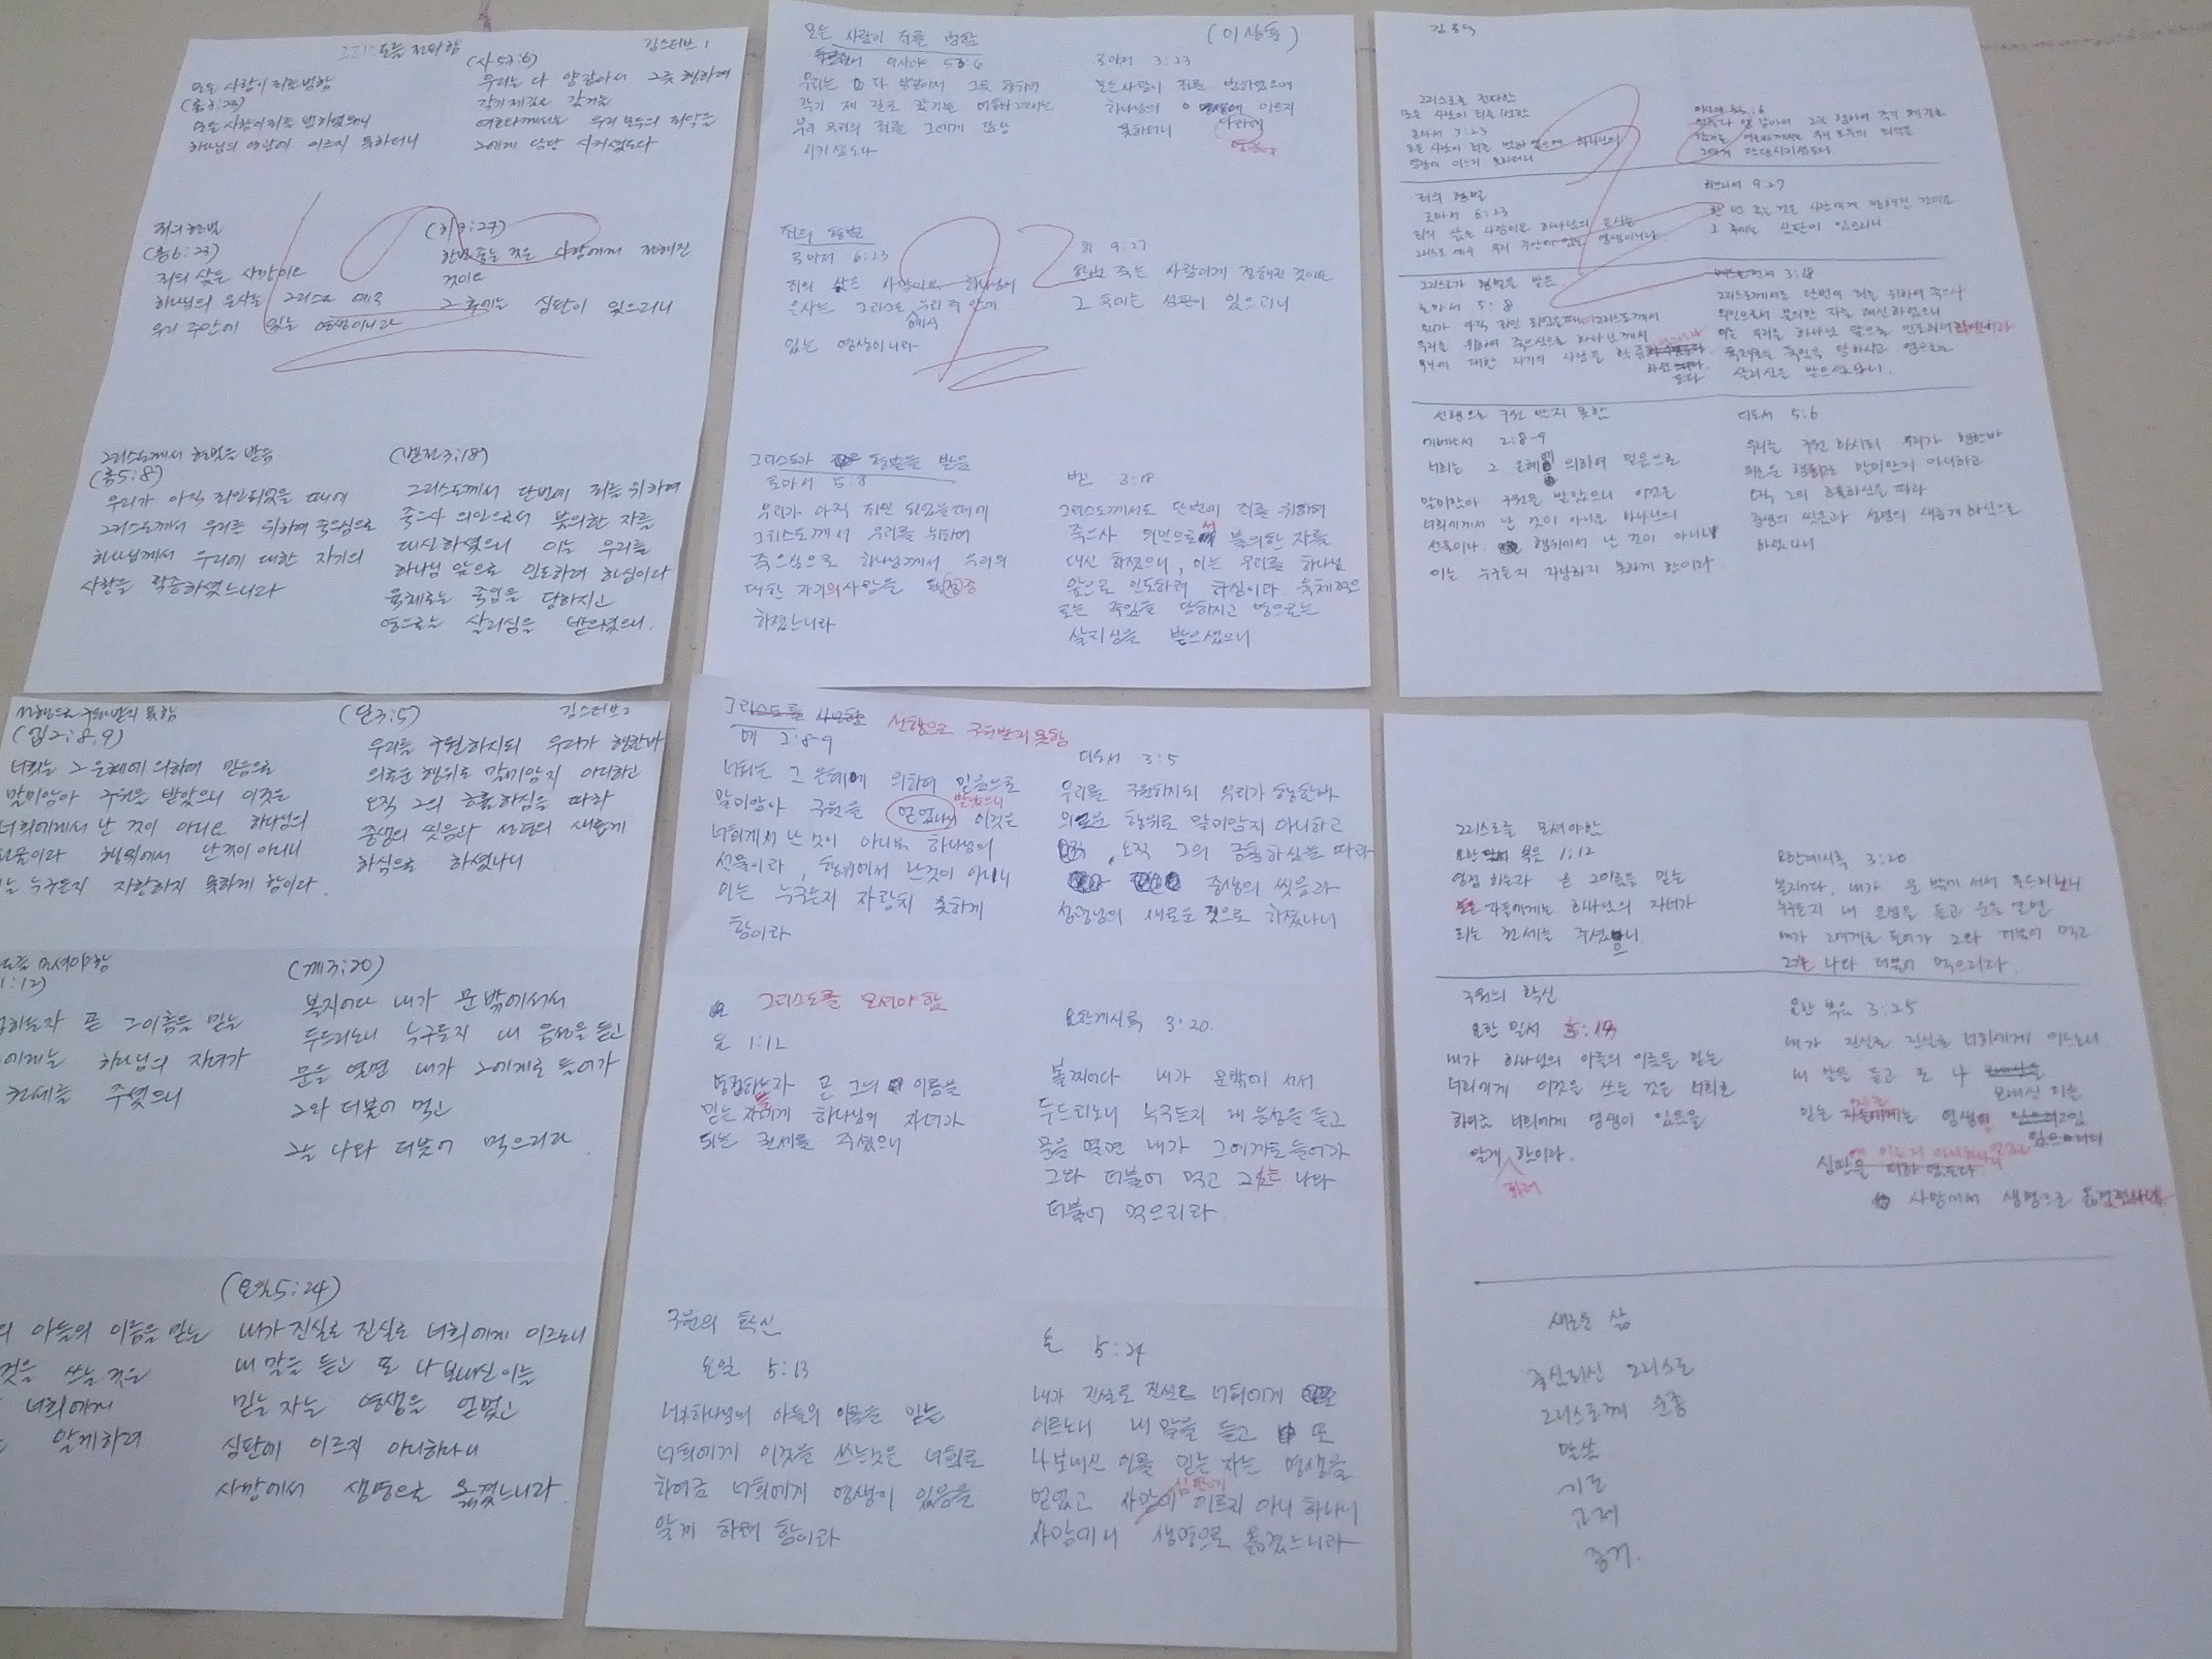 그리스도를 전파함
김스티브 1
모든 사람이 죄를 범함
(롬3:23)
모든 사람이 죄를 범하였으매
하나님의 영광에 이르지 못하더니
(사53:6)
우리는 다 양 같아서 그릇 행하여
각기 제 길로 갔거늘
여호와께서는 우리 모두의 죄악을
그에게 담당 시키셨도다
죄의 형벌
(롬6:23)
죄의 삯은 사망이요
하나님의 은사는 그리스도 예수
우리 주안에 있는 영생이니라
(히9:27)
한번 죽는 것은 사람에게 정해진
것이요
그 후에는 심판이 있으리니
그리스도께서 형벌을 받음
(롬5:8)
우리가 아직 죄인되었을 때에
그리스도께서 우리를 위하여 죽으심으로
하나님께서 우리에 대한 자기의
사랑을 확증하셨느니라
(벧전3:18)
그리스도께서 단번에 죄를 위하여
죽으사 의인으로서 불의한 자를
대신하셨으니 이는 우리를
하나님 앞으로 인도하려 하심이라
육체로는 죽임을 당하시고
영으로는 살리심을 받으셨으니.
모든 사람이 죄를 범함
(이상훈)
이사야 53:6
우리는 다 양같아서 그릇 행하여
각기 제 길로 갔거늘 여호와께서는
우리 무리의 죄를 그에게 담당
시키셨도다
로마서 3:23
모든사람이 죄를 범하였으매
하나님의 영광에 이르지
못하더니
죄의 형벌
로마서 6:23
죄의 삯은 사망이요 하나님의
은사는 그리스도 예수 우리 주 안에
있는 영생이니라
히 9:27
한번 죽는 사람에게 정해진 것이요
그 후에는 심판이 있으리니
그리스도가 형벌을 받음
로마서 5:8
우리가 아직 죄인 되었을때에
그리스도께서 우리를 위하여
죽으심으로 하나님께서 우리의
대한 자기의사랑을 확증
하셨느니라
벧전 3:18
그리스도께서도 단번에 죄를 위하여
죽으사 의인으로서 불의한 자를
대신 하셨으니, 이는 우리를 하나님
앞으로 인도하려 하심이라 육체적으
로는 죽임을 당하시고 영으로는
살리심을 받으셨으니
그리스도를 전파함
모든 사람이 죄를 범함
로마서 3:23
모든 사람이 죄를 범하였으매 하나님의
영광에 이르지 못하더니
이사야 53:6
그에게 담당시키셨도다
죄의 형벌
로마서 6:23
죄의 삯은 사망이요 하나님의 은사는
그리스도 예수 우리 주안에 있는 영생이니라
히브리서 9:27
한 번 죽는 것은 사람에게 정해진 것이요
그 후에는 심판이 있으리니
그리스도가 형벌을 받음
로마서 5:8
우리가 아직 죄인 되었을때에 그리스도께서
우리를 위하여 죽으심으로 하나님께서
우리에 대한 자기의 사랑을 확증
3:18
그리스도께서도 단번에 죄를 위하여 죽으사
의인으로서 불의한 자를 대신 하셨으니
이는 우리를 하나님 앞으로 인도하려 하심이라
육체로는 죽임을 당하시고 영으로는
살리심을 받으셨으니.
선행으로 구원 받지 못함
에베소서 2:8-9
너희는 그 은혜에 의하여 믿음으로
말미암아 구원을 받았으니 이것은
너희에게서 난 것이 아니요 하나님의
선물이라. 행위에서 난 것이 아니니
이는 누구든지 자랑하지 못하게 함이라.
디도서 5:6
우리를 구원 하시되 우리가 행한바
의로운 행위로 말미암지 아니하고
오직 그의 긍휼하심을 따라
중생의 씻음과 성령의 새롭게 하심으로
하셨나니
선행으로 구원받지 못함
김스티브2
(엡2:8,9)
너희는 그 은혜에 의하여 믿음으로
말미암아 구원을 받았으니 이것은
너희에게서 난 것이 아니요 하나님의
선물이라 행위에서 난것이 아니니
이는 누구든지 자랑하지 못하게 함이라.
(딛3:5)
우리를 구원하시되 우리가 행한바
의로운 행위로 말미암지 아니하고
오직 그의 긍휼하심을 따라
중생의 씻음과 성령의 새롭게
하심으로 하셨나니
도를 모셔야함
1:12)
접하는자 곧 그이름을 믿는
에게는 하나님의 자녀가
권세를 주셨으니
(계3:20)
볼지어다 내가 문 밖에서서
두드리노니 누구든지 내 음성을 듣고
문을 열면 내가 그에게로 들어가
그와 더불어 먹고
그는 나와 더불어 먹으리라.
의 아들의 이름을 믿는
것을 쓰는 것은
너희에게
알게하려
(요한5:24)
내가 진실로 진실로 너희에게 이르노니
내 말을 듣고 또 나 보내신 이를
믿는 자는 영생을 얻었고
심판에 이르지 아니하나니
사망에서 생명으로 옮겼느니라.
선행으로 구원받지 못함
에 2:8-9
너희는 그 은혜에 의하여 믿음으로
말미암아 구원을 얻었나니 받았으니 이것은
너희게서 난 것이 아니요 하나님의
선물이라, 행위에서 난것이 아니니
이는 누구든지 자랑치 못하게
함이라
디도서 3:5
우리를 구원하시되 우리가 행한바
의로운 행위로 말미암지 아니하고
오직 그의 긍휼하심을 따라
중생의 씻음과
성령님의 새로운 것으로 하셨나니
그리스도를 모셔야 함
요 1:12
영접하는자 곧 그의 이름을
믿는 자에게 하나님의 자녀가
되는 권세를 주셨으니
요한계시록 3:20.
볼찌어다 내가 문밖에 서서
두드리노니 누구든지 내 음성을 듣고
문을 열면 내가 그에게로 들어가
그와 더불어 먹고 그는 나와
더불어 먹으리라
구원의 확신
요일 5:13
너희에게 이것을 쓰는것은 너희로
하여금 너희에게 영생이 있음을
알게 하려 함이라
요 5:24
내가 진실로 진실로 너희에게
이르노니 내 말을 듣고 또
나 보내신 이를 믿는 자는 영생을
얻었고 심판에 이르지 아니 하나니
사망에니 생명으로 옮겼느니라
그리스도를 모셔야함
요한 복음 1:12
영접 하는자 곧 그이름을 믿는
자들에게는 하나님의 자녀가
되는 권세를 주셨으니
요한계시록 3:20
볼지어다. 내가 문 밖에 서서 두드리노니
누구든지 내 음성을 듣고 문을 열면
내가 그에게로 들어가 그와 더불어 먹고
그는 나와 더불어 먹으리라.
구원의 확신
요한 일서 5:13
내가 하나님의 아들의 이름을 믿는
너희에게 이것을 쓰는 것은 너희로
하여금 너희에게 영생이 있음을
알게 하려 함이라.
요한 복음 3:25
내가 진실로 진실로 너희에게 이르노니.
내 말을 듣고 또 나
보내신 이를
믿는 영생
사망에서 생명으로
새로운 삶
중심되신 그리스도
그리스도께 순종
말씀
기도
교제
증거.